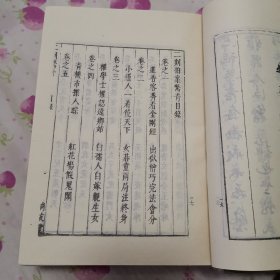 二刻拍案驚奇目錄
卷之一
進香客莽看金剛經　出獄僧巧完法會分
卷之二
小道人一着饒天下　女棋童兩局注終身
卷之三
權學士權認遠鄉姑　白孺人白嫁親生女
卷之四
青樓市探人踪　紅花場假鬼鬧
卷之五
目錄
尚友堂